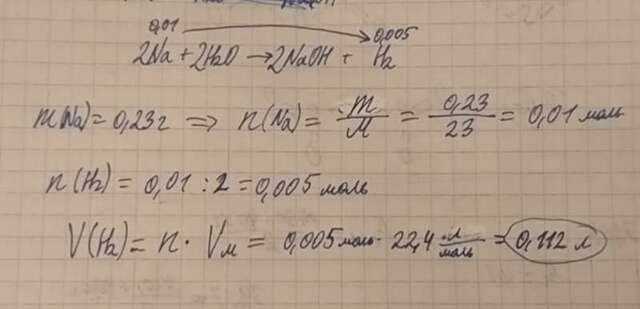 0,01 0,005
2Na + 2H₂O → 2NaOH + H₂
m(Na) = 0,23 г ⇒ n(Na) = m/M = 0,23/23 = 0,01 моль
n(H₂) = 0,01 : 2 = 0,005 моль
V(H₂) = n · Vм = 0,005 моль · 22,4 л/моль = 0,112 л